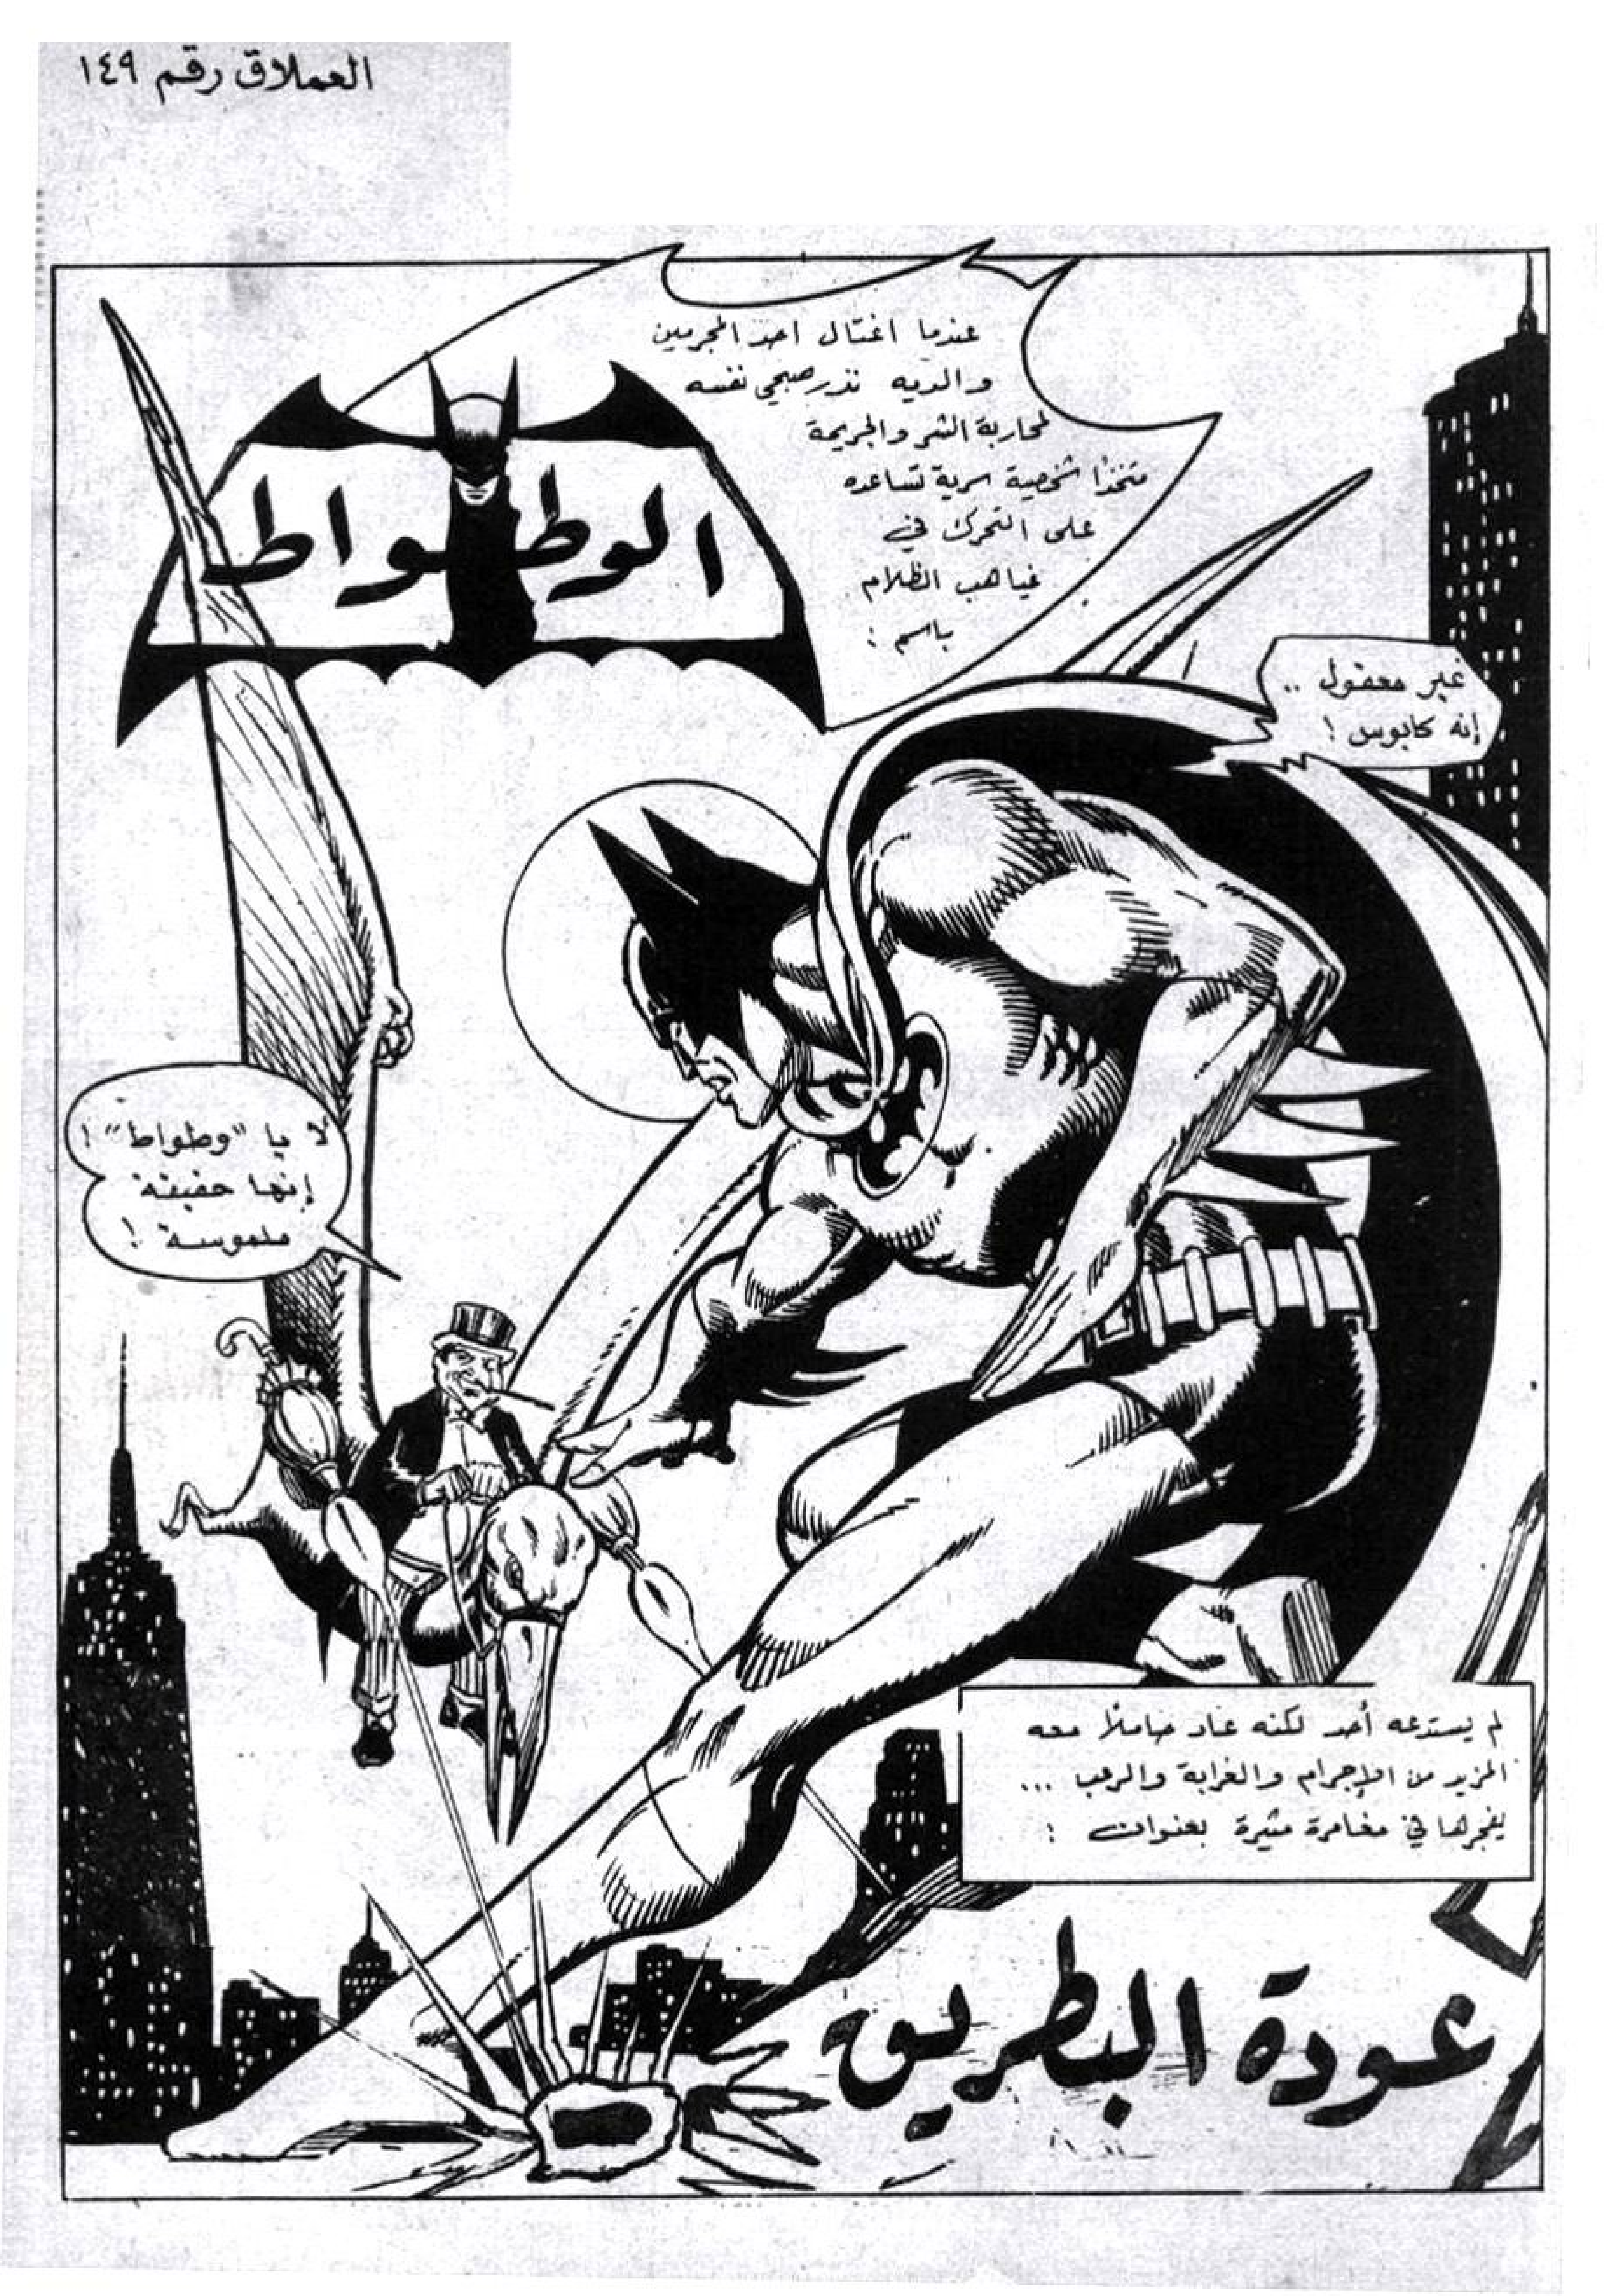 العملاق رقم ١٤٩
عندما اغتال احد المجرمين
والديه نذر صبحي نفسه
لمحاربة الشر والجريمة
متخذًا شخصية سرية تساعده
على التحرك في
غياهب الظلام
باسم :
الوطواط
غير معقول ..
إنه كابوس !
لا يا "وطواط" !
إنها حقيقة
ملموسة !
لم يستدعه أحد لكنه عاد حاملاً معه
المزيد من الإجرام والغرابة والرعب ...
يفجرها في مغامرة مثيرة بعنوان :
عودة البطريق